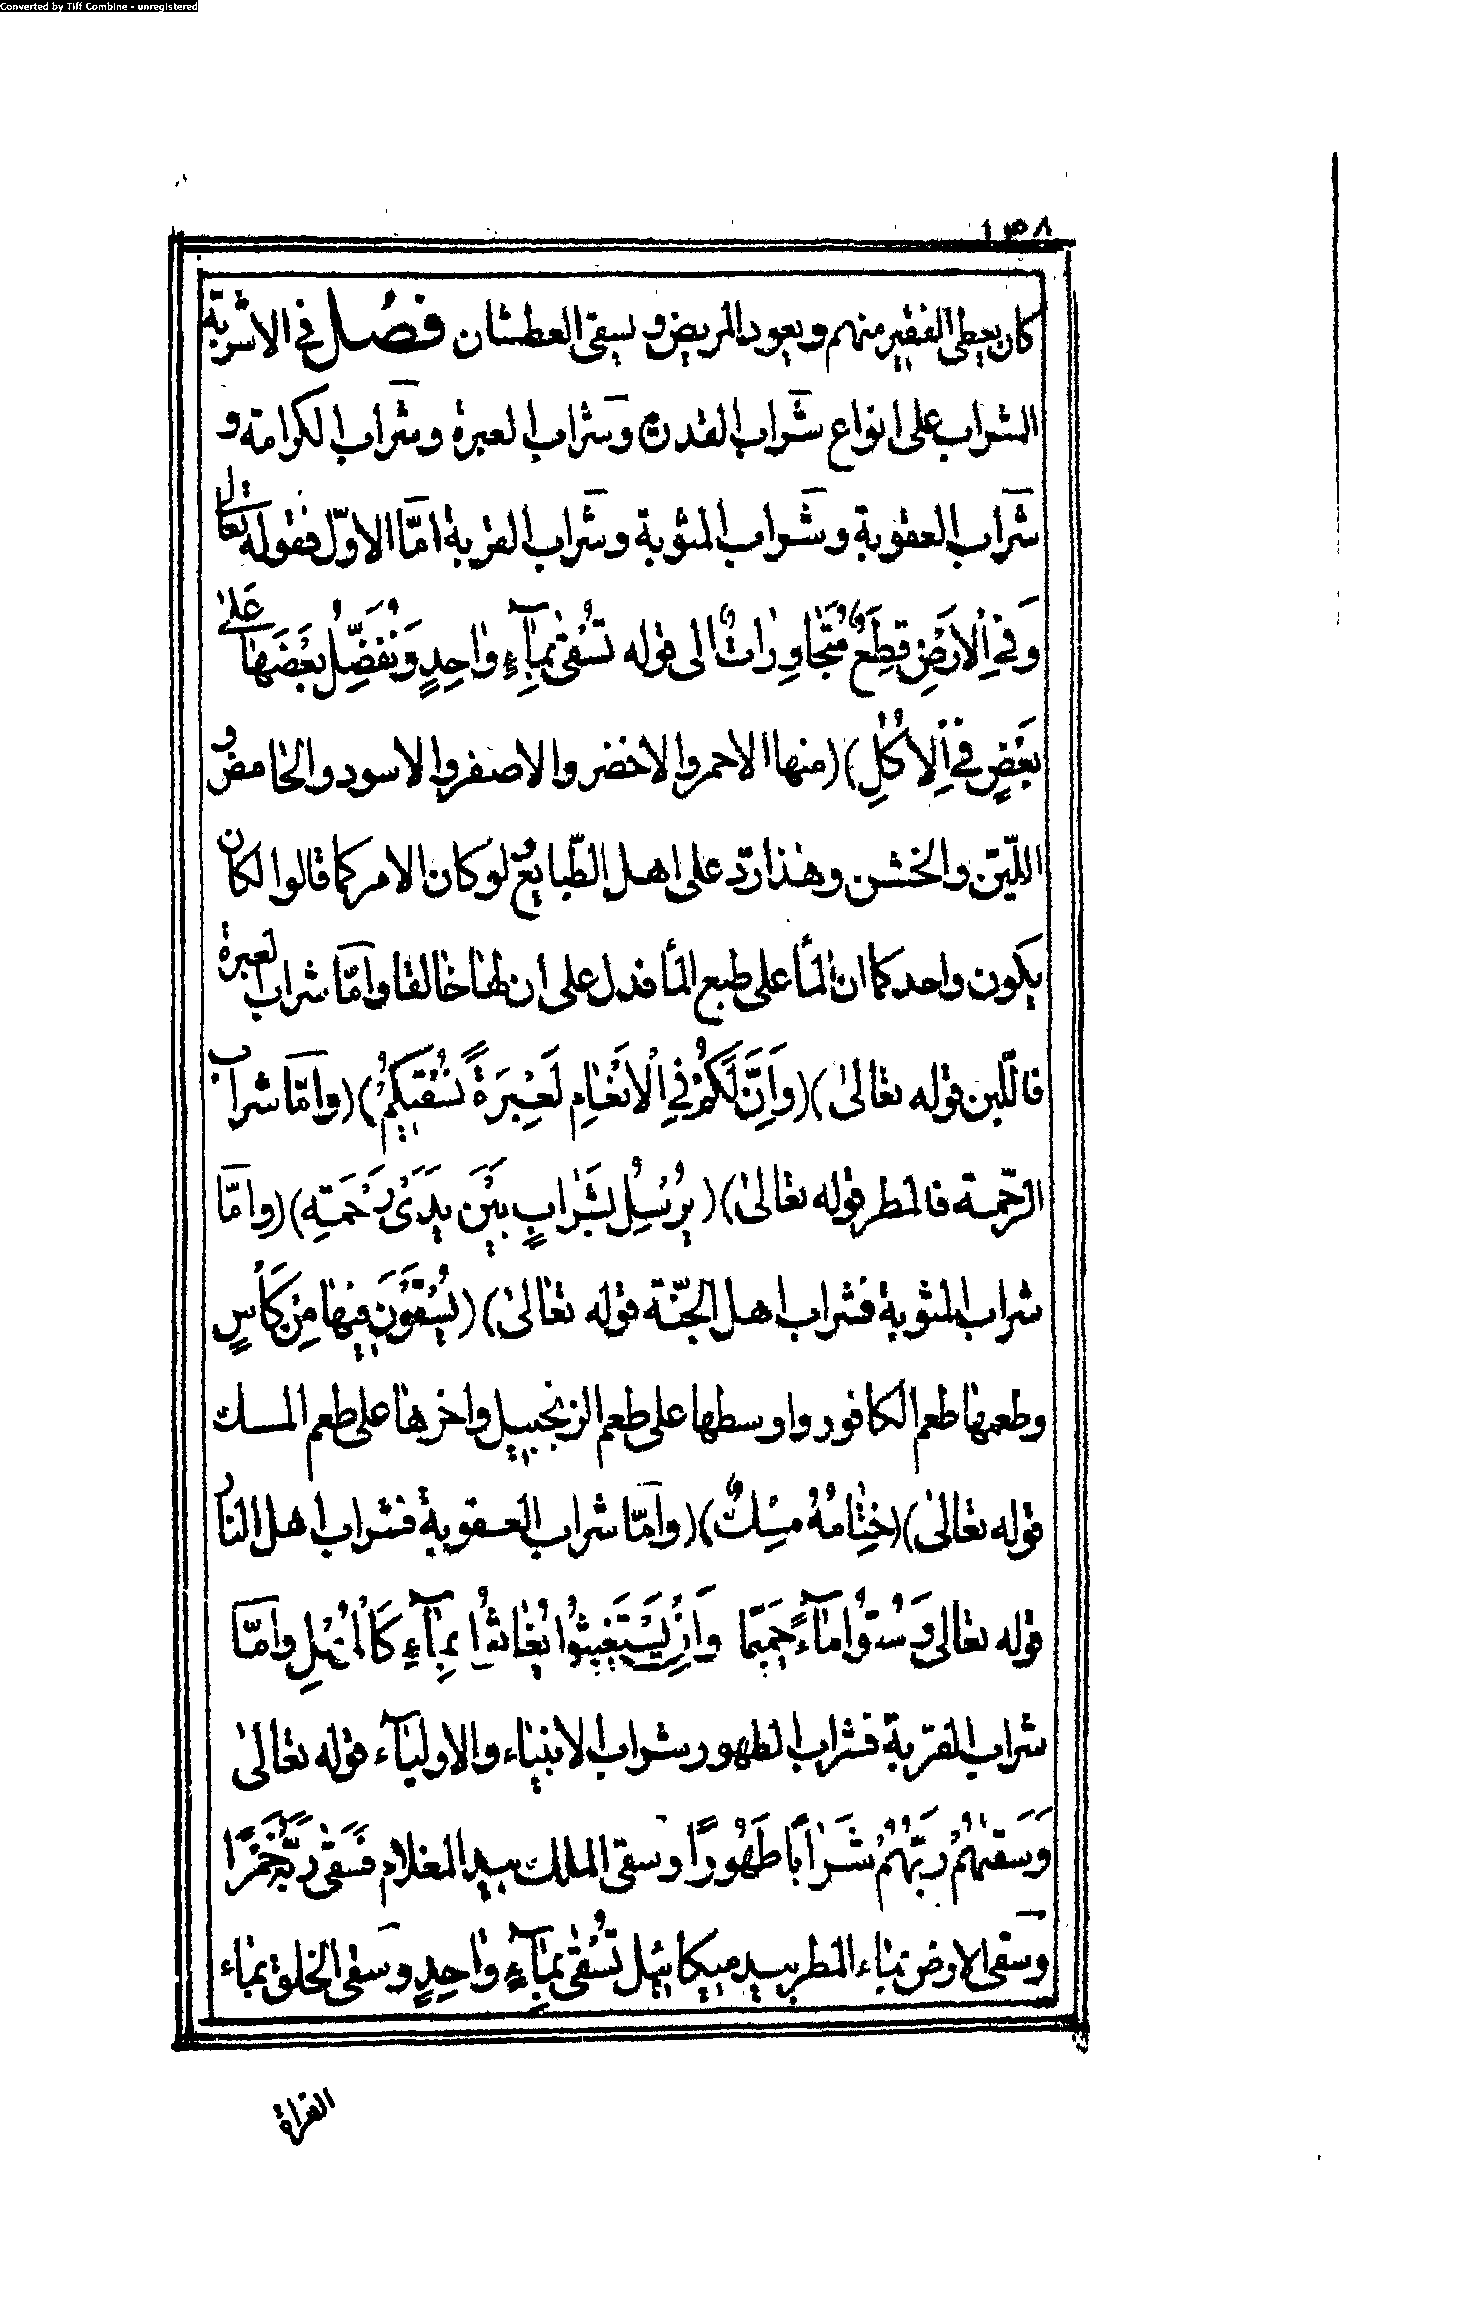 Converted by Tiff Combine - unregistered
١٣٨
كان يعطى الفقير منهم ويعود المريض و يسقى العطشان فصل في الاشربة
الشراب على انواع شراب القدرة وشراب العبرة وشراب الكرامة و
شراب العقوبة وشراب المثوبة وشراب القربة امّا الاوّل فقوله تعالى
وَفِي الْاَرْضِ قِطَعٌ مُتَجَاوِرَاتٌ الى قوله تُسْقٰى بِمَآءٍ وَاحِدٍ وَنُفَضِّلُ بَعْضَهَا عَلٰى
بَعْضٍ فِي الْاُكُلِ)(منها الاحمر والاخضر والاصفر والاسود والحامض و
اللّين والخشن وهذا ردّ على اهل الطّبايع لو كان الامر كما قالوا لكان
يكون واحد كما ان المأ على طبع المأ فدل على ان لها خالقا وامّا شراب لعبرة
فاللّبن قوله تعالىٰ)(وَاِنَّ لَكُمْ فِي الْاَنْعَامِ لَعِبْرَةً نُسْقِيكُمْ)(وامّا شراب
الرّحمة فالمطر قوله تعالىٰ)(يُرْسِلُ بَشَرَابٍ بَيْنَ يَدَىْ رَحْمَتِهِ)(وامّا
شراب المثوبة فشراب اهل الجنّة قوله تعالىٰ)(يُسْقَوْنَ فِيهَا مِنْ كَأْسٍ
وطعمها طعم الكافور واوسطها على طعم الزنجبيل واخرها على طعم المسك
قوله تعالىٰ)(خِتَامُهُ مِسْكٌ)(وامّا شراب العقوبة فشراب اهل النار
قوله تعالى وَسُقُوا مَآءً حَمِيمًا وَاِنْ يَسْتَغِيثُوا يُغَاثُوا بِمَآءٍ كَالْمُهْلِ وامّا
شراب القربة فشراب الطهور شراب الانبياء والاوليآء قوله تعالىٰ
وَسَقٰيهُمْ رَبُّهُمْ شَرَابًا طَهُورًا وسقى الملك بيد الغلام فَسَقٰى رَبَّهُ خَمْرًا
وسقى الارض بماء المطر بيد ميكائيل تُسْقٰى بِمَآءٍ وَاحِدٍ وسقى الخلق بماء
الفراة